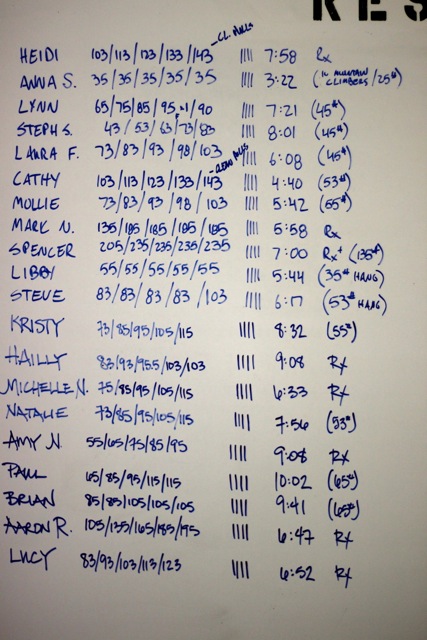 RES
HEIDI 103/113/123/133/143 - CL. PULLS |||| 7:58 Rx
ANNA S. 35/35/35/35/35 |||| 3:22 (16 MOUNTAIN CLIMBERS/25#)
LYNN 65/75/85/95x1/90 |||| 7:21 (45#)
STEPH S. 43/53/63/73/83 |||| 8:01 (45#)
LAURA F. 73/83/93/98/103 |||| 6:08 (45#)
CATHY 103/113/123/133/143 - CLEAN PULLS |||| 4:40 (53#)
MOLLIE 73/83/93/98/103 |||| 5:42 (55#)
MARK N. 135/185/185/185/185 |||| 5:58 Rx
SPENCER 205/235/235/235/235 |||| 7:00 Rx+ (135#)
LIBBY 55/55/55/55/55 |||| 5:44 (35# HANG)
STEVE 83/83/83/83/103 |||| 6:17 (53# HANG)
KRISTY 73/85/95/105/115 |||| 8:32 (55#)
HAILLY 83/93/95.5/103/103 |||| 9:08 Rx
MICHELLE N. 75/85/95/105/115 |||| 6:33 Rx
NATALIE 73/85/95/105/115 |||| 7:56 (53#)
AMY N. 55/65/75/85/95 |||| 9:08 Rx
PAUL 65/85/95/115/115 |||| 10:02 (65#)
BRIAN 85/85/105/105/105 |||| 9:41 (65#)
AARON R. 105/135/165/185/195 |||| 6:47 Rx
LUCY 83/93/103/113/123 |||| 6:52 Rx